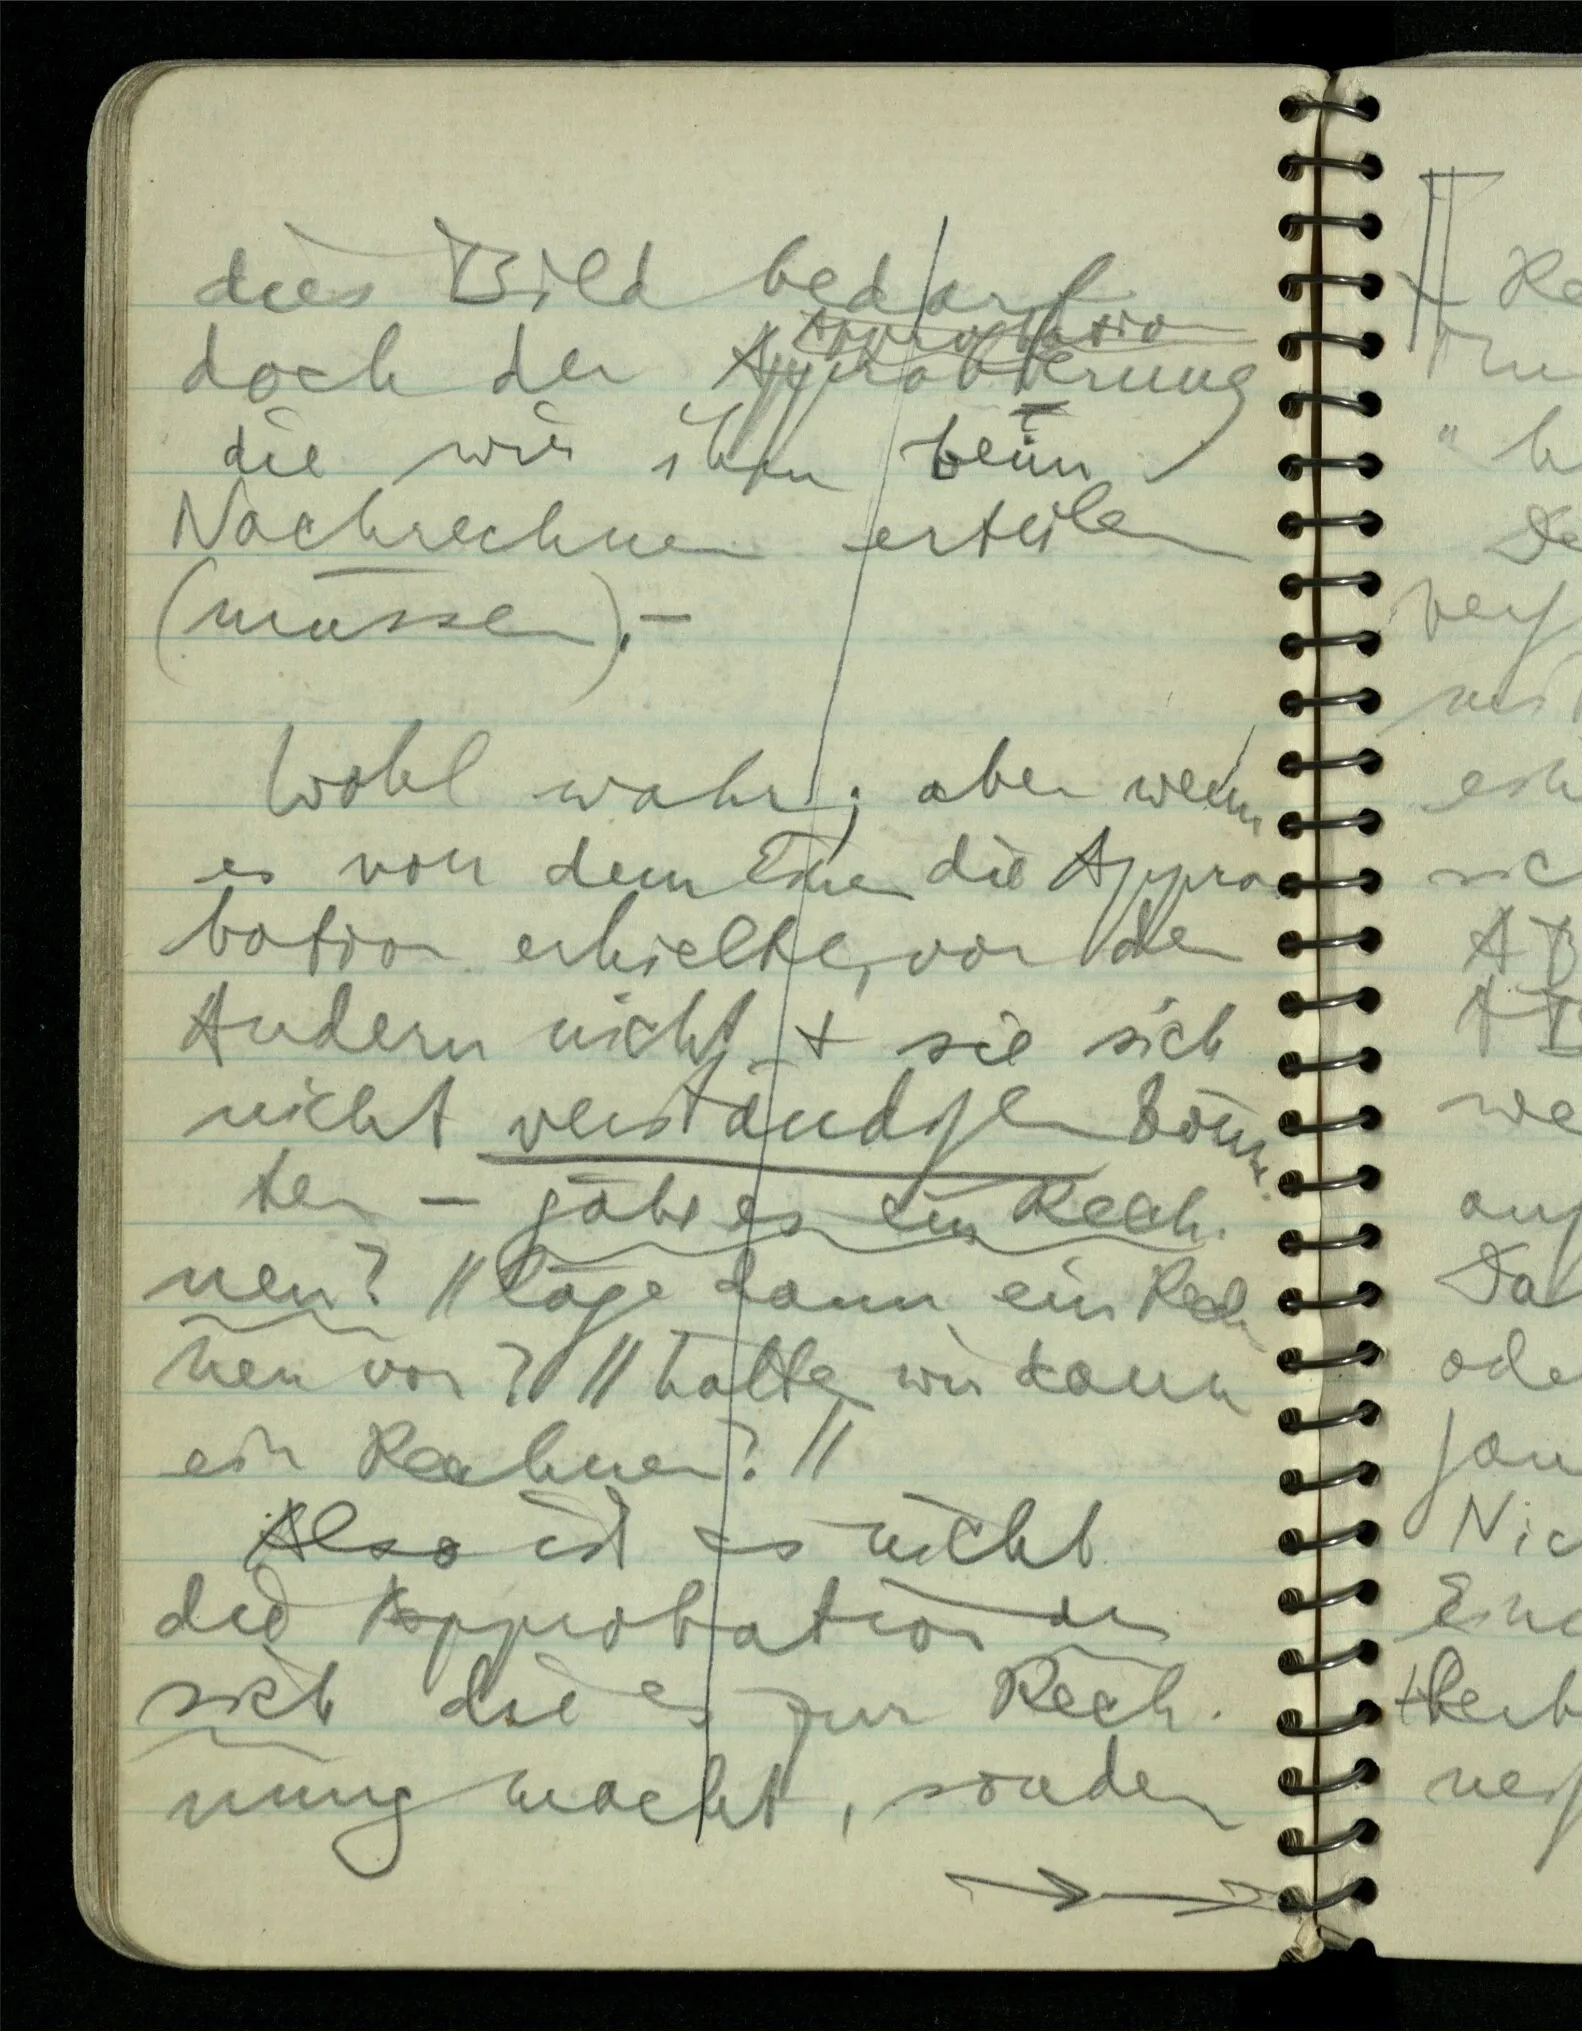 dies Bild bedarf
Approbation
doch der Approbierung
die wir ihm beim
Nachrechnen erteilen
(müssen).–
Wohl wahr; aber wenn
es von dem Einen die Appro
bation erhielte, von dem
Andern nicht + sie sich
nicht verständigen könn-
ten – gäbe es ein Rech-
nen? // läge dann ein Rech
nen vor? // hätten wir dann
ein Rechnen? //
Also ist es nicht
die Approbation an
sich die es zur Rech-
nung macht, sondern
Re
"
De
A B
A B
we
auf
Da
ode
Nic